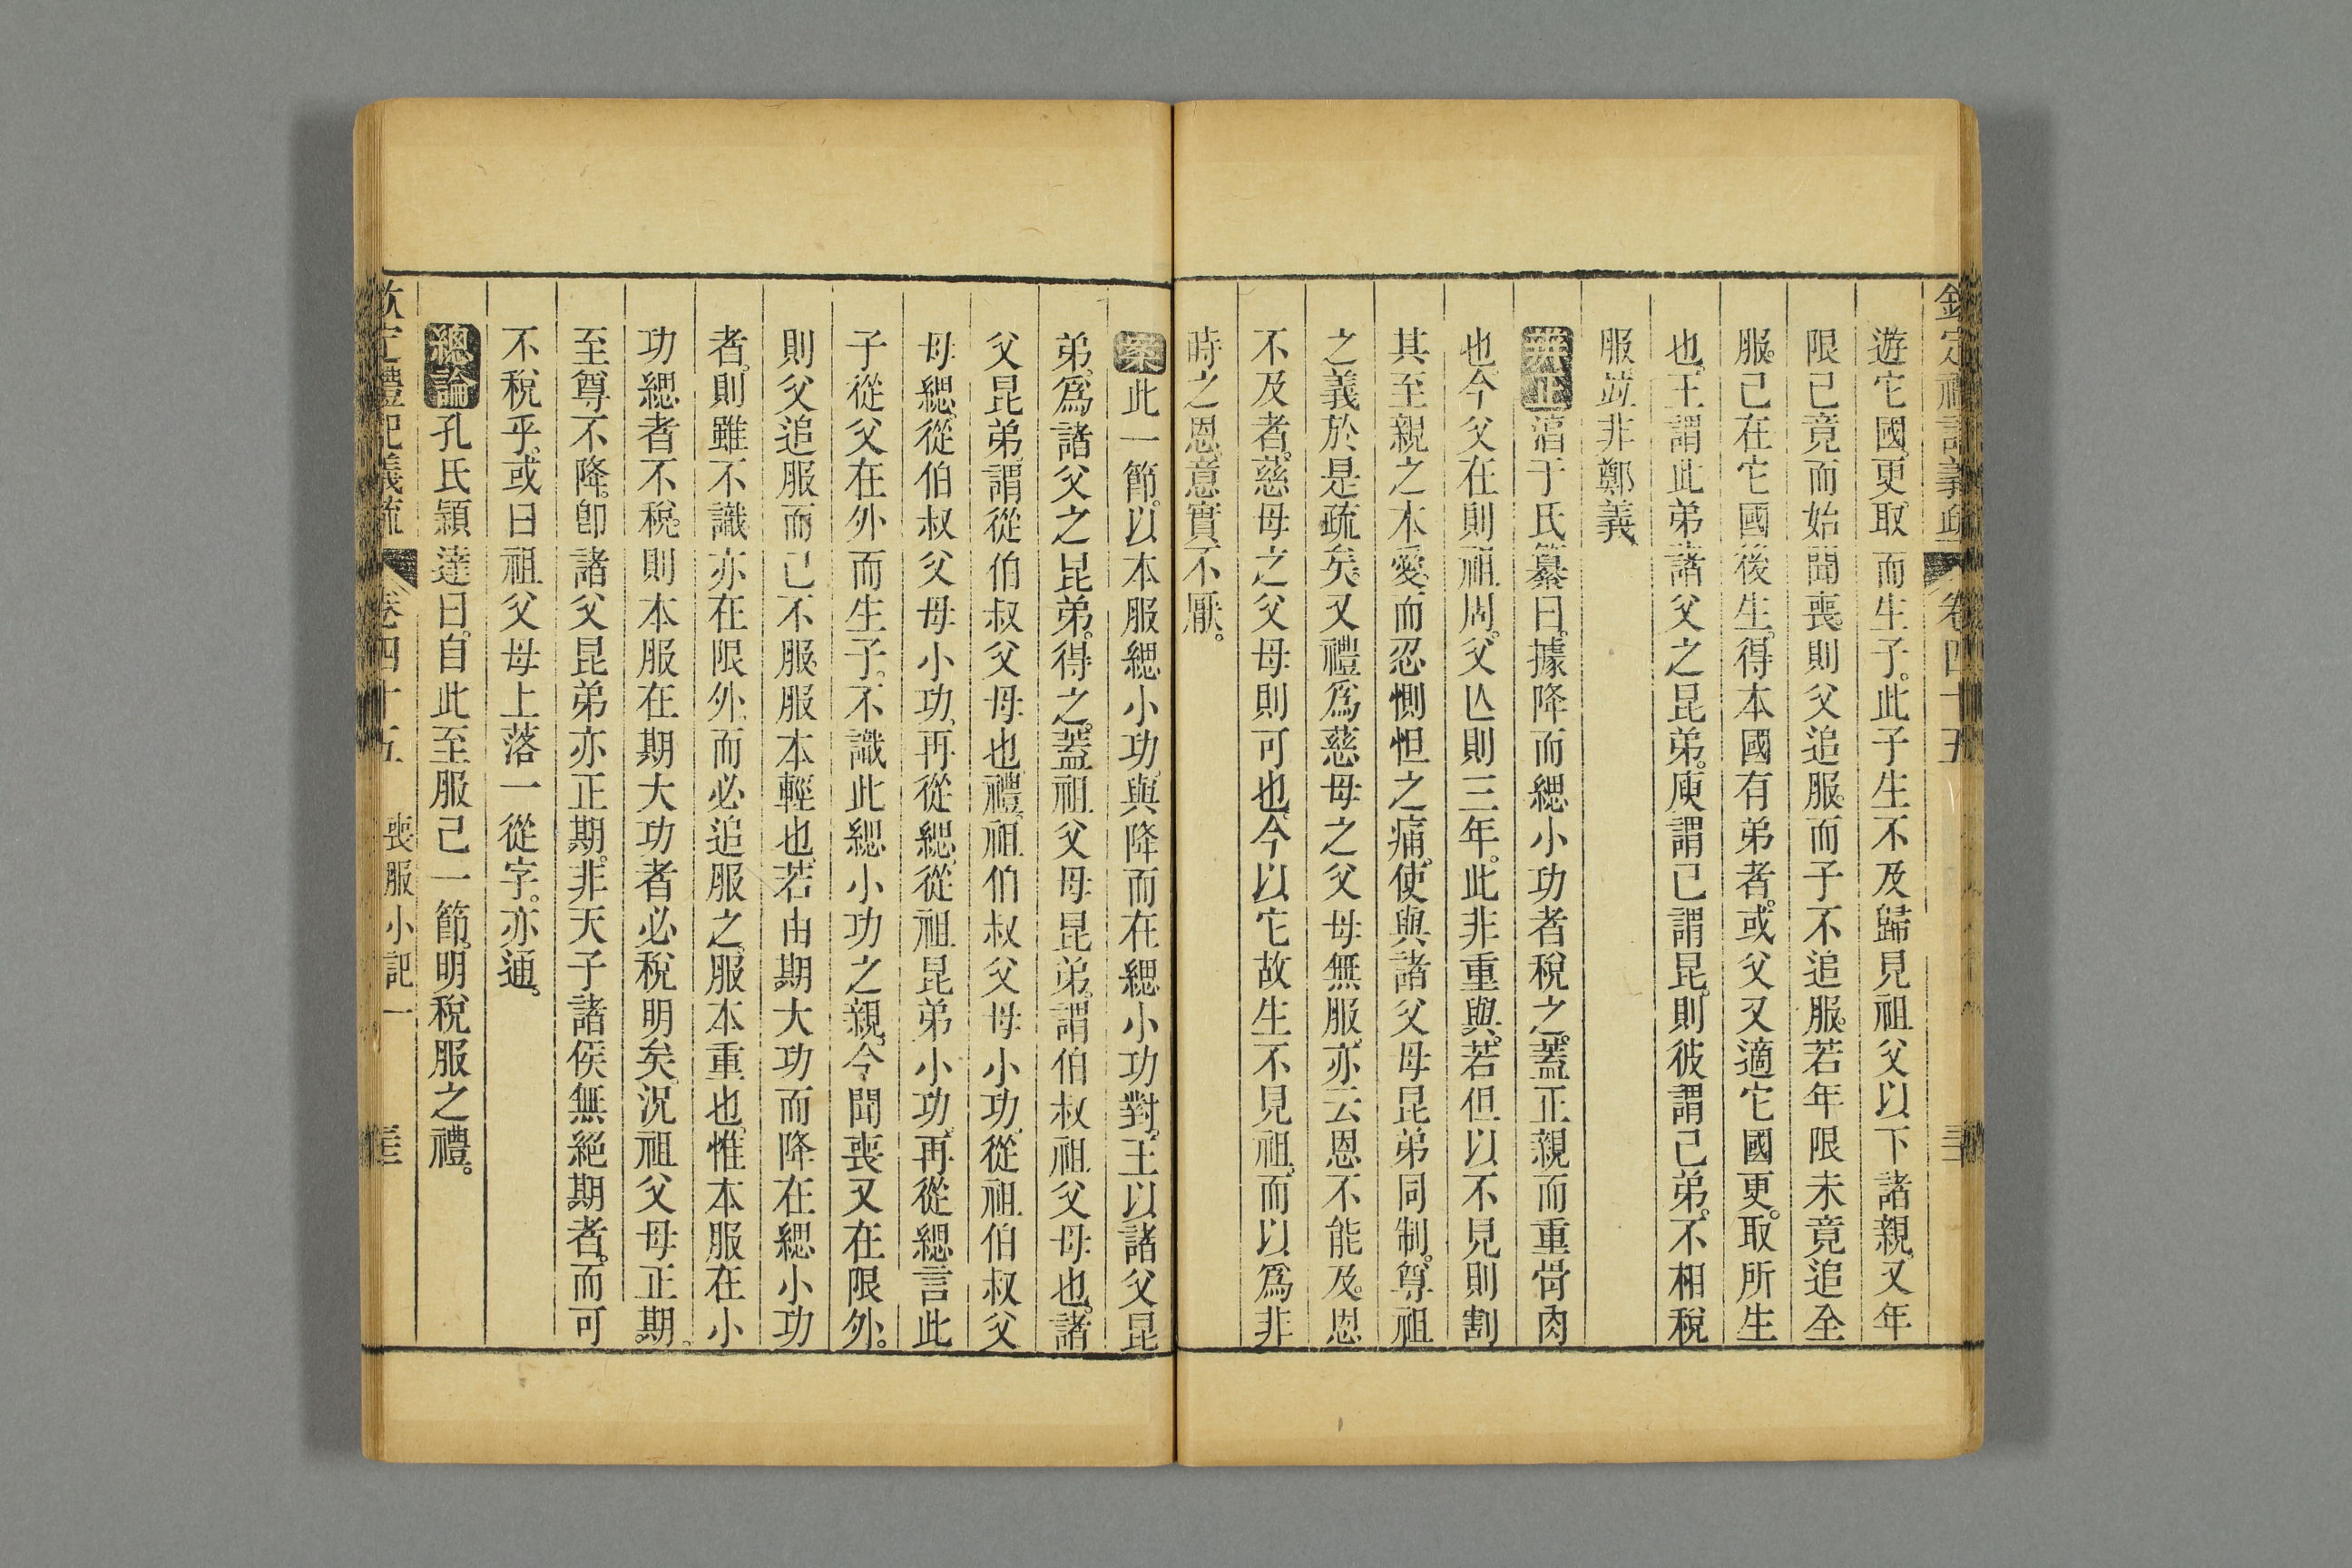 欽定禮記義疏 卷四十五
遊它國更取而生子。此子生不及歸見祖父以下諸親。又年
限已竟而始聞喪。則父追服。而子不追服。若年限未竟追全
服。己在它國後生。得本國有弟者。或父又適它國更取所生
也。王謂此弟諸父之昆弟。庾謂己謂昆。則彼謂己弟。不相稅
服。竝非鄭義。
辨正淳于氏纂曰。據降而緦小功者稅之。蓋正親而重骨肉
也。今父在則祖周。父亾則三年。此非重與。若但以不見則割
其至親之本愛。而忍惻怛之痛。使與諸父母昆弟同制。尊祖
之義於是疏矣。又禮爲慈母之父母無服。亦云恩不能及。恩
不及者。慈母之父母則可也。今以它故生不見祖。而以爲非
時之恩。意實不厭。
案此一節。以本服緦小功。與降而在緦小功對。王以諸父昆
弟。爲諸父之昆弟。得之。蓋祖父母昆弟。謂伯叔祖父母也。諸
父昆弟。謂從伯叔父母也。禮。祖伯叔父母小功。從祖伯叔父
母緦。從伯叔父母小功。再從緦。從祖昆弟小功。再從緦。言此
子從父在外而生子。不識此緦小功之親。今聞喪又在限外。
則父追服而己不服。服本輕也。若由期大功而降在緦小功
者。則雖不識。亦在限外。而必追服之。服本重也。惟本服在小
功緦者不稅。則本服在期大功者必稅明矣。況祖父母正期。
至尊不降。卽諸父昆弟亦正期。非天子諸侯無絕期者。而可
不稅乎。或曰祖父母上落一從字。亦通。
總論孔氏穎達曰。自此至服己一節。明稅服之禮。
欽定禮記義疏 卷四十五 喪服小記一